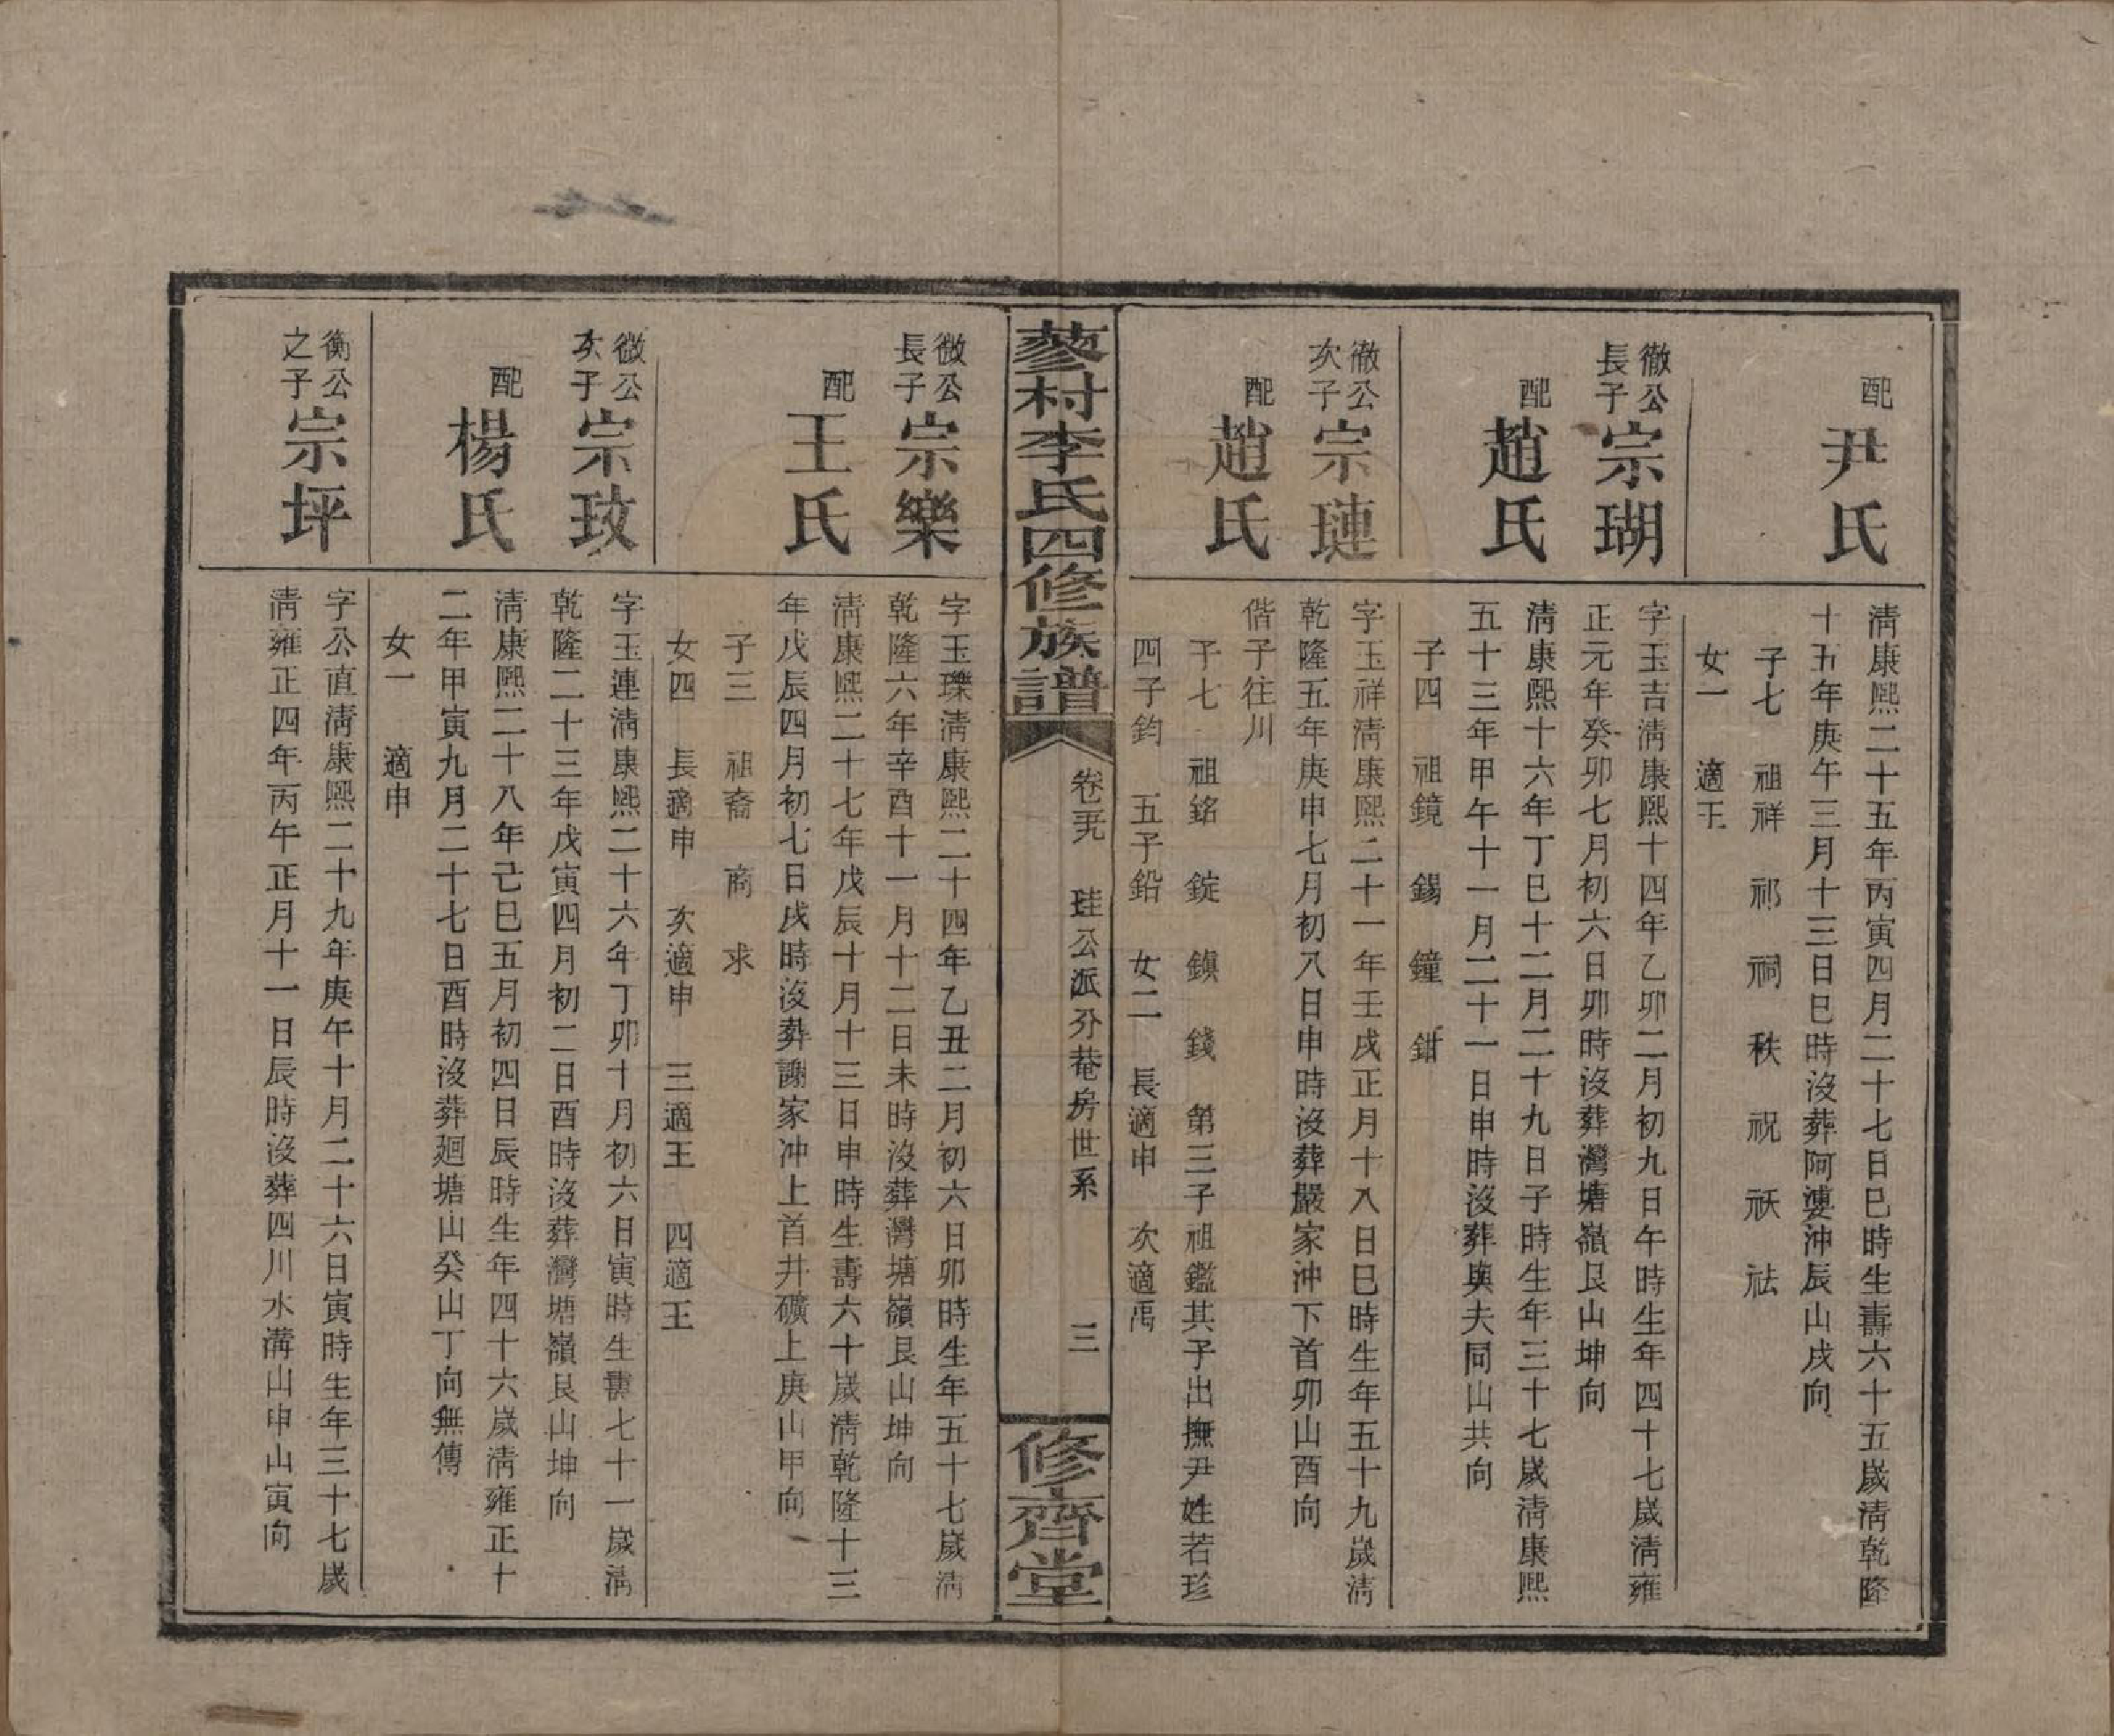 配尹氏
清康熙二十五年丙寅四月二十七日巳時生壽六十五歲清乾隆
十五年庚午三月十三日巳時沒葬阿婆沖辰山戌向
子七　祖祥　祁　祠　秩　祝　祆　祛
女一　適王
徹公長子宗瑚
字玉吉清康熙十四年乙卯二月初九日午時生年四十七歲清雍
正元年癸卯七月初六日卯時沒葬灣塘嶺艮山坤向
配趙氏
清康熙十六年丁巳十二月二十九日子時生年三十七歲清康熙
五十三年甲午十一月二十一日申時沒葬與夫同山共向
子四　祖鏡　錫　鐘　鉗
徹公次子宗璉
字玉祥清康熙二十一年壬戌正月十八日巳時生年五十九歲清
乾隆五年庚申七月初八日申時沒葬嚴家沖下首卯山酉向
偕子往川
配趙氏
子七　祖銘　錠　鎮　錢　第三子祖鑑其子出撫尹姓若珍
四子鈞　五子鉛　女二　長適申　次適禹
蓼村李氏四修族譜
卷五　珪公派芥菴房世系　三
修齊堂
微公長子宗樂
字玉瓅清康熙二十四年乙丑二月初六日卯時生年五十七歲清
乾隆六年辛酉十一月十二日未時沒葬灣塘嶺艮山坤向
配王氏
清康熙二十七年戊辰十月十三日申時生壽六十歲清乾隆十三
年戊辰四月初七日戌時沒葬謝家沖上首井礦上庚山甲向
子三　祖裔　商　求
女四　長適申　次適申　三適王　四適王
微公次子宗玫
字玉連清康熙二十六年丁卯十月初六日寅時生壽七十一歲清
乾隆二十三年戊寅四月初二日酉時沒葬灣塘嶺艮山坤向
配楊氏
清康熙二十八年己巳五月初四日辰時生年四十六歲清雍正十
二年甲寅九月二十七日酉時沒葬廻塘山癸山丁向無傳
女一　適申
衡公之子宗坪
字公直清康熙二十九年庚午十月二十六日寅時生年三十七歲
清雍正四年丙午正月十一日辰時沒葬四川水溝山申山寅向